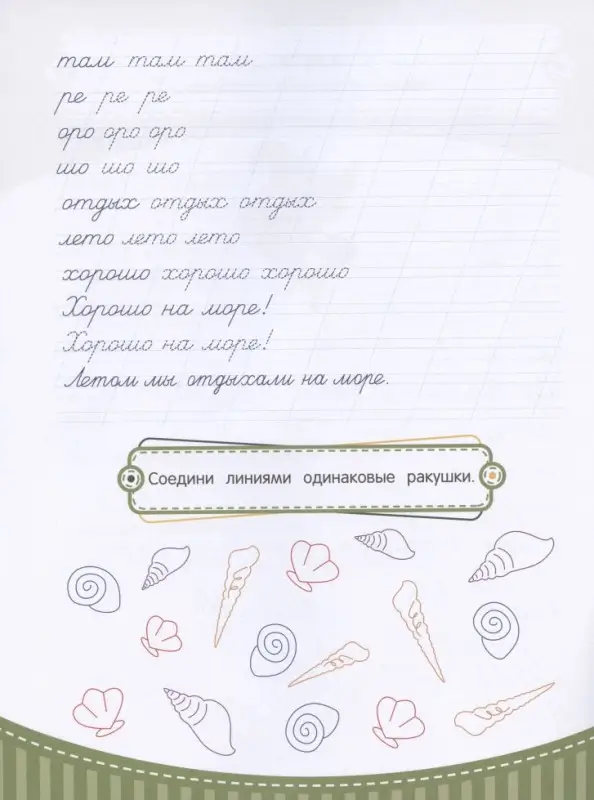 там там там
ре ре ре
оро оро оро
шо шо шо
отдых отдых отдых
лето лето лето
хорошо хорошо хорошо
Хорошо на море!
Хорошо на море!
Летом мы отдыхали на море.
Соедини линиями одинаковые ракушки.